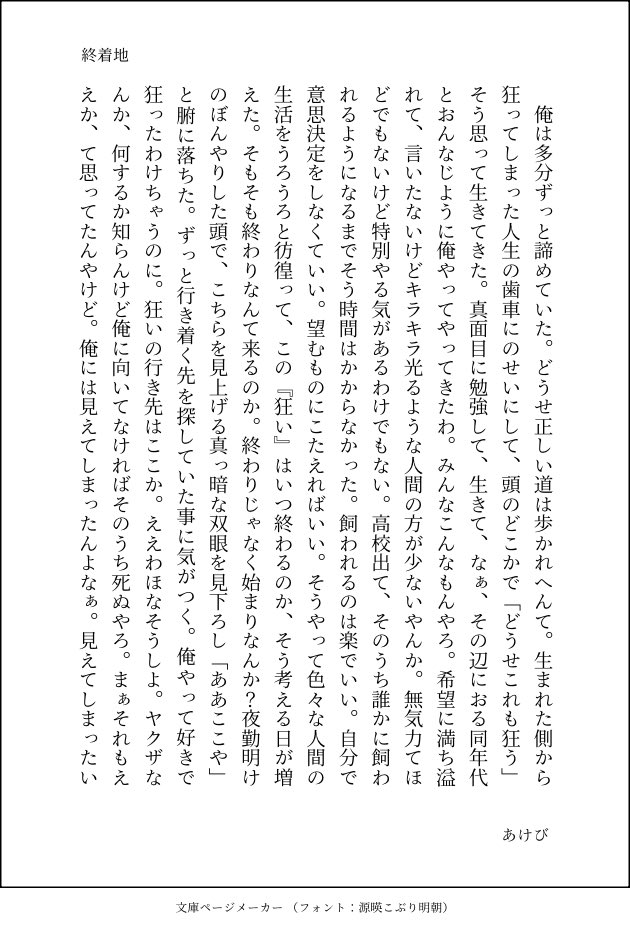 終着地
　俺は多分ずっと諦めていた。どうせ正しい道は歩かれへんて。生まれた側から
狂ってしまった人生の歯車にのせいにして、頭のどこかで「どうせこれも狂う」
そう思って生きてきた。真面目に勉強して、生きて、なぁ、その辺におる同年代
とおんなじように俺やってやってきたわ。みんなこんなもんやろ。希望に満ち溢
れて、言いたないけどキラキラ光るような人間の方が少ないやんか。無気力てほ
どでもないけど特別やる気があるわけでもない。高校出て、そのうち誰かに飼わ
れるようになるまでそう時間はかからなかった。飼われるのは楽でいい。自分で
意思決定をしなくていい。望むものにこたえればいい。そうやって色々な人間の
生活をうろうろと彷徨って、この『狂い』はいつ終わるのか、そう考える日が増
えた。そもそも終わりなんて来るのか。終わりじゃなく始まりなんか？夜勤明け
のぼんやりした頭で、こちらを見上げる真っ暗な双眼を見下ろし「ああここや」
と腑に落ちた。ずっと行き着く先を探していた事に気がつく。俺やって好きで
狂ったわけちゃうのに。狂いの行き先はここか。ええわほなそうしよ。ヤクザな
んか、何するか知らんけど俺に向いてなければそのうち死ぬやろ。まぁそれもえ
えか、て思ってたんやけど。俺には見えてしまったんよなぁ。見えてしまったい
あけび
文庫ページメーカー（フォント：源暎こぶり明朝）